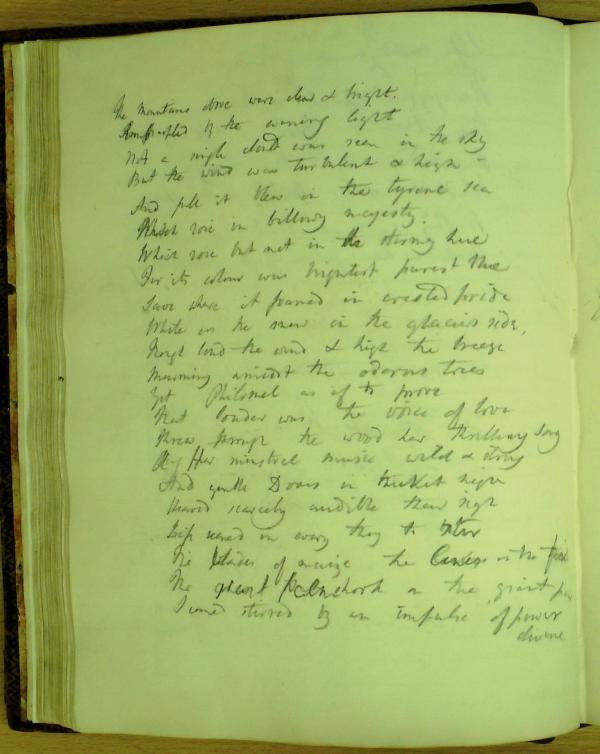 The mountains above were clear & bright.
by the evening light
Not a single cloud was seen in the sky
But the wind was turbulent & high -
And it blew in the tyrone sea
Which rose in billowy majesty.
Which rose but not in stormy hue
For its colour was brightest purest blue
Save where it foamed in crested pride
White as the snow in the glaciers side,
Though loud the wind & high the breeze
Mourning amidst the odorous trees
Yet Philomel as if to prove
That louder was the voice of love
Threw through the wood her thrilling song
Her minstrel music wild & strong
And gentle Doves in thicket nigh
Heard scarcely audible their sigh
Life seemed in every thing to
The blades of maize the Canes in the
The on the giant
Seemed stirred by an impulse of power
divine